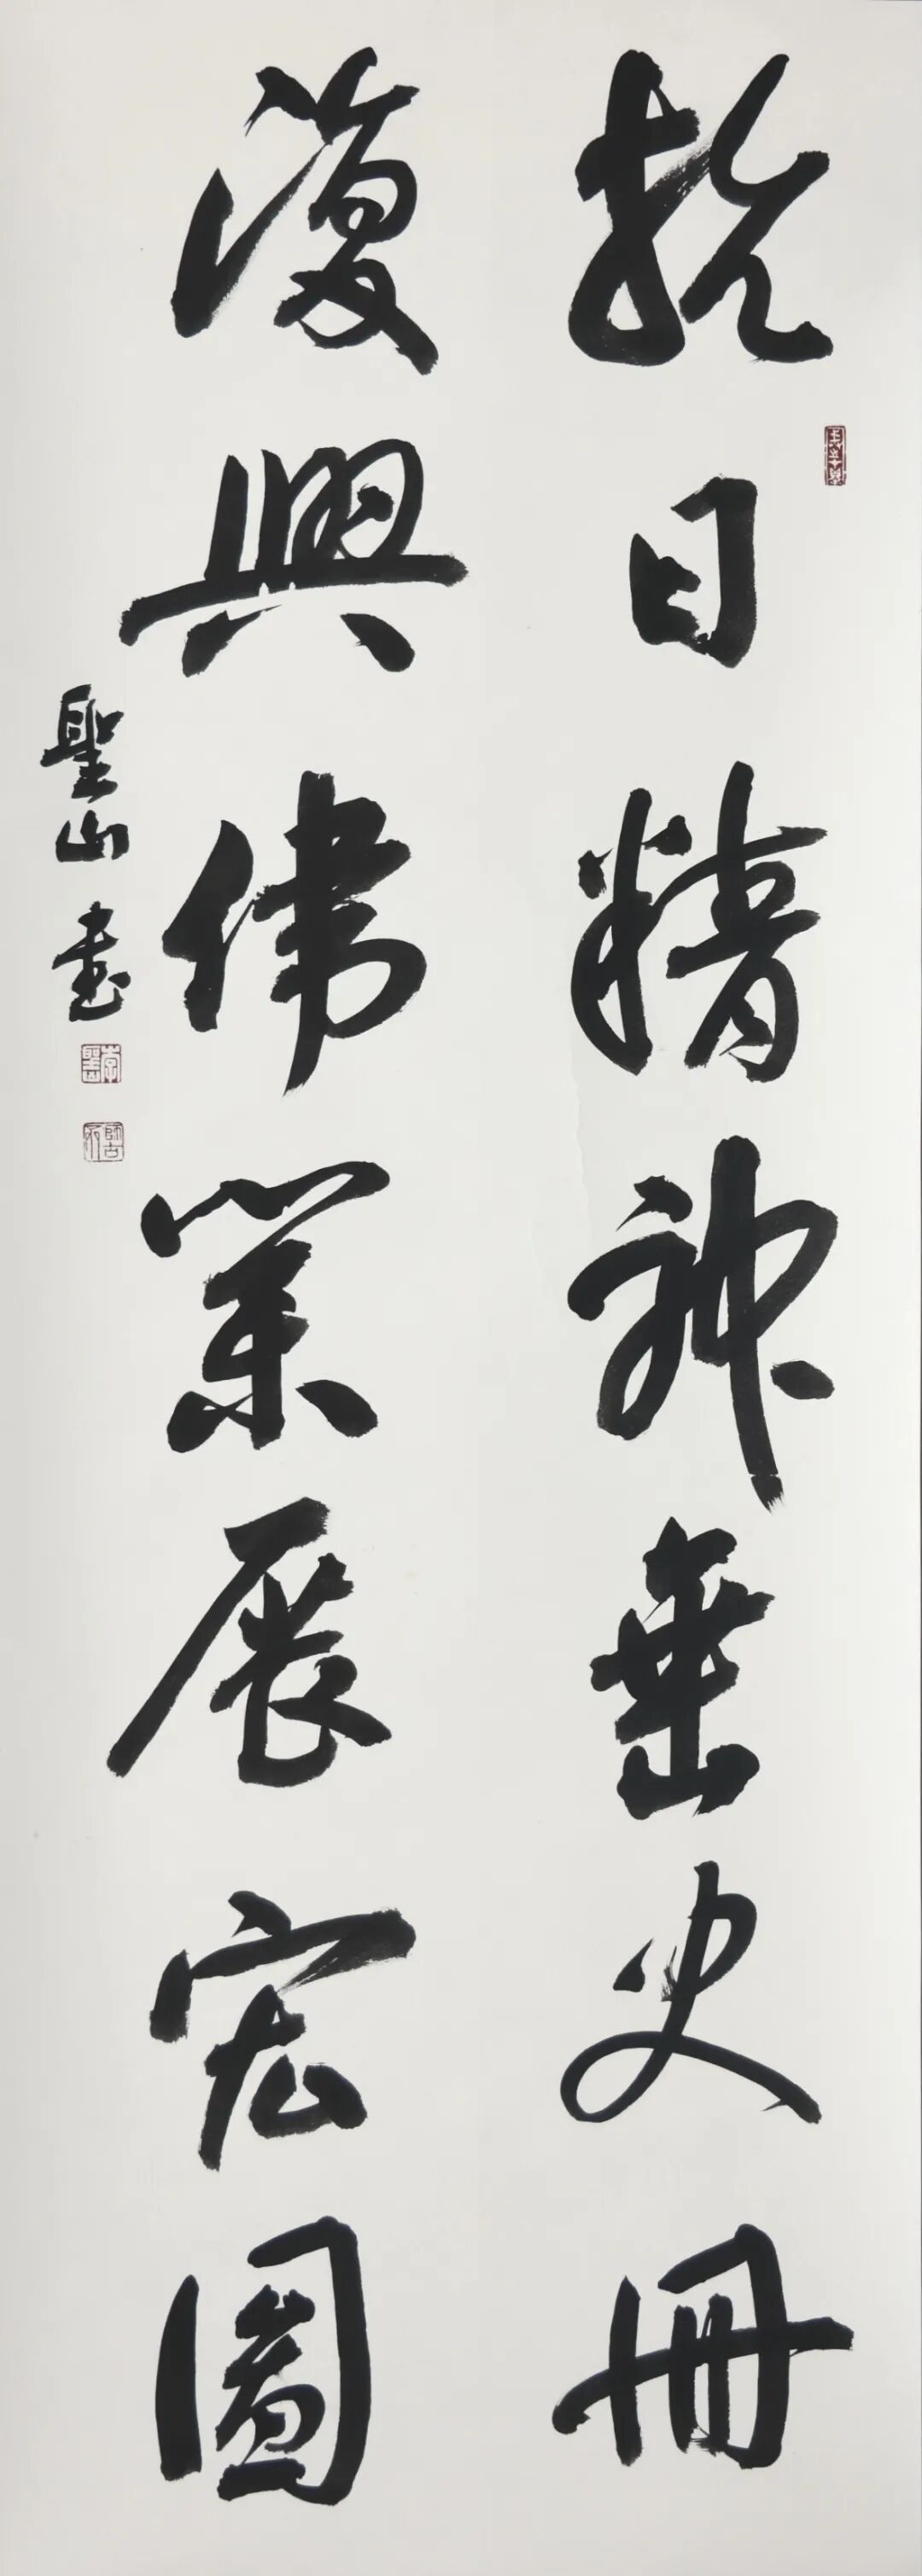 抗日精神垂史冊
復興偉業展宏圖
聖山書